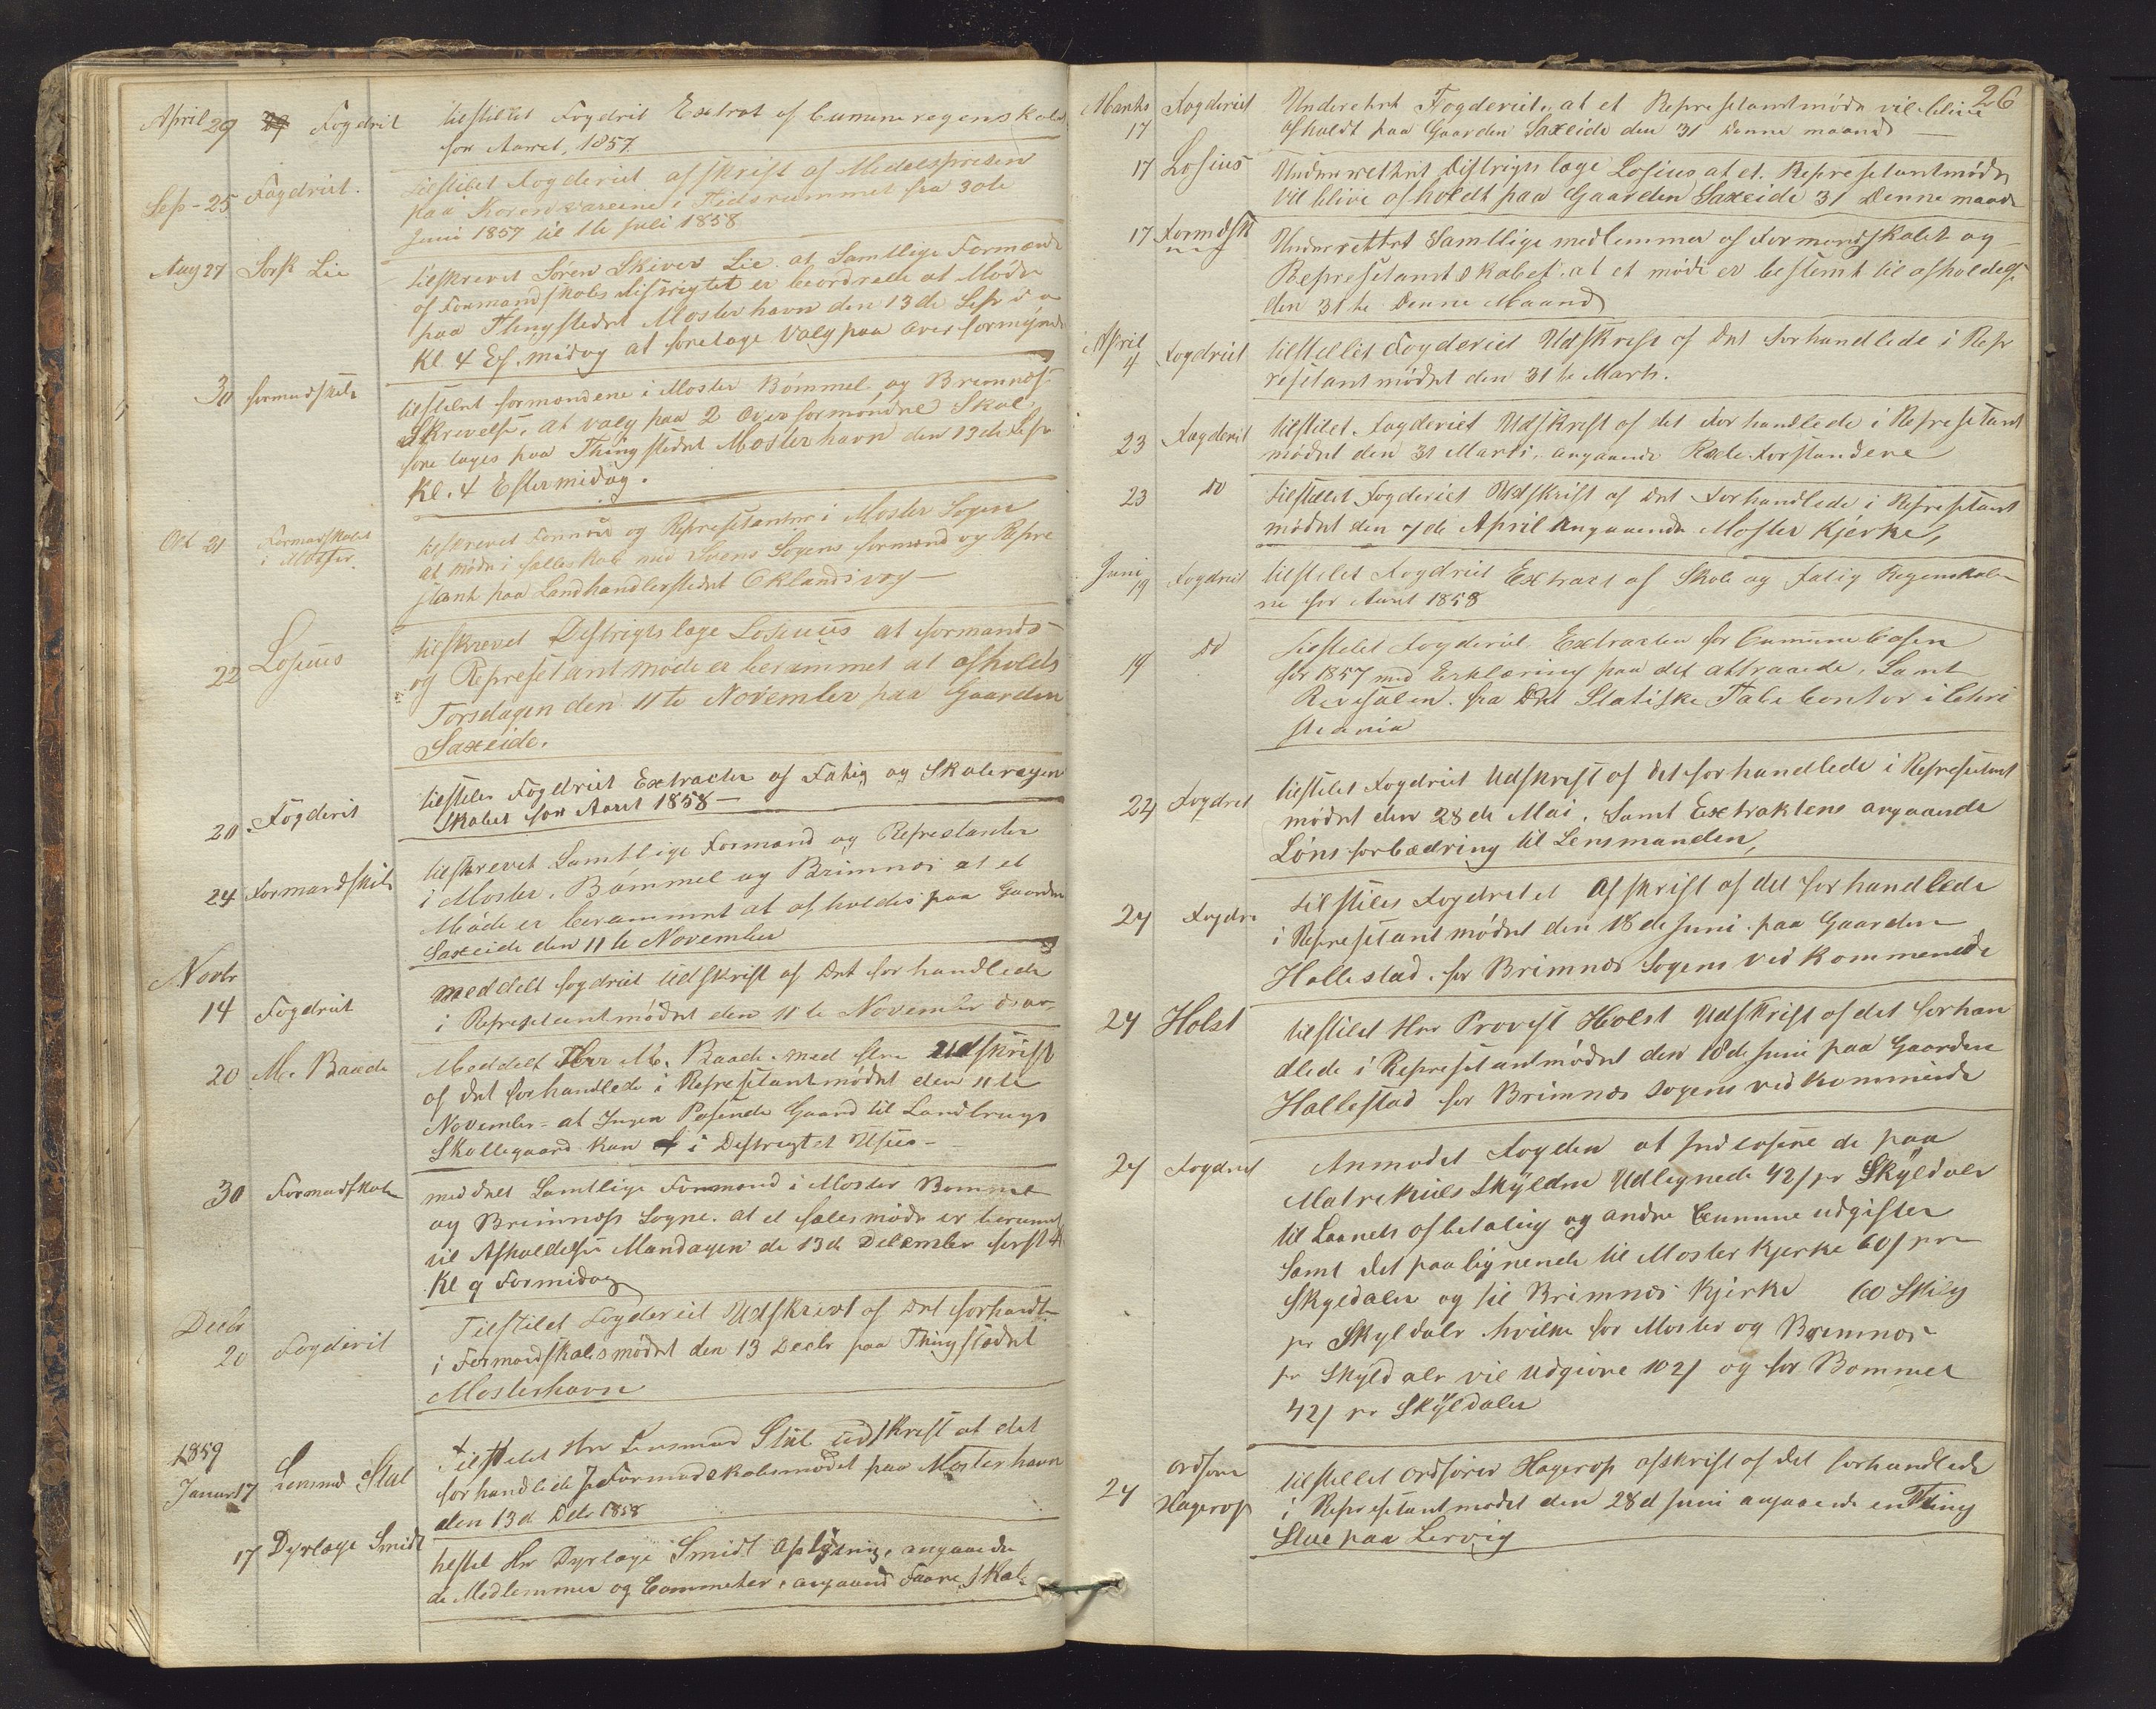 April 29 Fogdrit tilstillet Fogdrit Extrat af Cumuneregenskabe
for Aaret, 1857
Sep - 25 Fogdriet. tilstilet Fogderiet afskrift af Medelsprisen
paa Kornvareine i Tidsrummet fra 30te
Juni 1857 til 1te Juli 1858
Aug 27 Sorsk Lie tilskrevet Sören Skiver Lie at Samtlige Formænd
af Formandskabs distrigtet er beordrede at Möde
paa Thingstedet Mosterhavn den 13de Sepr d a
Kl. 4 Ef. midag at foretage Valg paa Overformynd
30 formandskab tilstilet formændene i Moster Bömmel og Brimnæs
Skrivelse, at valg paa 2 Overformöndre Skal
fore tages paa Thingstedet Mosterhavn den 13de Sepr
Kl. 4 Eftermidag.
Okt 21 Formandskabet
i Moster tilskrevet Formænd og Represetanter i Moster Sogen
at möde i fælleskab med Svens Sogens formænd og Repre
stant paa Landhandlerstedet Eklandsvog —
22 Losius tilskrevet Distrigts læge Losiuus at formands
og Represetantmöde er berammet at afholdes
Torsdagen den 11te November paa Gaarden
Saxeide.
20 Fogderit tilstiles Fogdriet Extracter af Fatig og Skoleregen
skabet for Aaret 1858 —
24 Formandskab tilskrevet Samtlige Formænd og Represtanter
i Moster, Bömmel og Brimnæs at et
Möde er berammet at afholdes paa Gaarden
Saxeide den 11te November
Novbr
14 Fogdriet meddelt fogdriet Udskrift af det forhandlede
i Represetantmödet den 11te November d ar
20 M. Baade Meddelt Herr M. Baade med flere Udskrift
af det forhandlede i Represetantmödet den 11te
November - at Ingen Pasende Gaard til Landbrugs
Skollegaard kan i Distrigtet Uses —
30 Formandskab meddelt Samtlige Formænd i Moster Bommel
og Brimnæss Sogne. at et fælesmöde er beramet
til Afholdelse Mandagen de 13de December först
Kl 9 Formidag
Decbr
20 Fogderit Tilstilet Fogderiet Udskrivt af det forhandl
i Formandskabsmödet den 13 Decbr paa Thingstedet
Mosterhavn
1859
Januar 17 Lensmd Stal Tilstilet Hr Lensmand Stal udskrift at det
forhandlede I Formandskabsmödet paa Mosterhavn
den 13d Debr 1858
17 Dyrlæge Smidt tilstil Hr Dyrlæge Smidt oplysning, angaaende
de Medlemmer og Commeter, angaaend Faare skab
26
Marhs
17 Fogderiet Underetret Fogderiet, at et Represetantmöde vil blive
afholdt paa Gaarden Saxeide den 31 denne maand —
17 Losius Underrettet Distrigts læge Losius at et Represetantmöde
Vil blive afholdt paa Gaarden Saxeide 31 denne maand
17 Formdsk Underrettet Samtlige medlemmer af Formandskabet og
Represetantskabet at et möde er bestemt til afholdelse
den 31te denne Maand
April
4 Fogdriet tilstillet Fogderiet Udskrift af det forhandlede i Repr
resetantmödet den 31te Marh.
23 Fogderit tilstilet Fogderiet Udskrift af det forhandlede i Represetant
mödet den 31 Marti, angaaende Rode Forstandere
23 do tilstilet Fogderiet Udskrift af det forhandlede i Represetant
mödet den 7de April Angaaende Moster Kjerke,
Juni
19 Fogdriet tilstilet Fogdriet Extract af Skole og Fatig Regenskabe
ne for Aaret 1858
19 do tilstilet Fogderiet Extracten for Cumune Casen
for 1857 med Erklæring paa det attraaede, Samt
Revisalen fra Det Statiske Tabe Contor i Chri
steania
22 Fogdret tilstilet Fogdriet Udskrift af det forhandlede i Represetant
mödet den 28de Mai. Samt Extraktene angaaende
Löns forbædring til Lensmanden,
24 Fogdre tilstiles Fogdretet Afskrift af det forhandlede
i Represetantmödet den 18de Juni paa Gaarden
Hallestad, for Brimnæs Sogens ved kommende
24 Holst tilstilet Herr Provst Holst Udskrift af det forhan
dlede i Represetantmödet den 18de Juni paa Gaarden
Hallestad for Brimnæs sogens ved kommende
24 Fogdriet Anmodet Fogden at Indcasere de paa
Matrekuls Skylden Udlignede 42/ pr Skyldaler
til Laanets afbetaling og andre Cumune udgifter
Samt det paalignende til Moster Kjerke 60/ pr
Skyldaler og til Brimnæs Kjerke 60 Skilg
pr Skyldalr hvilke for Moster og Brimnæs
pr Skyldalr vil udgiöre 102/ og for Bommel
42/ pr Skyldaler
24 Ordförer
Hagerop tilstillet Ordförer Hagerop afskrift af det forhandlede
i Represetantmödet den 28d Juni angaaende en Thing
Stue paa Lervig